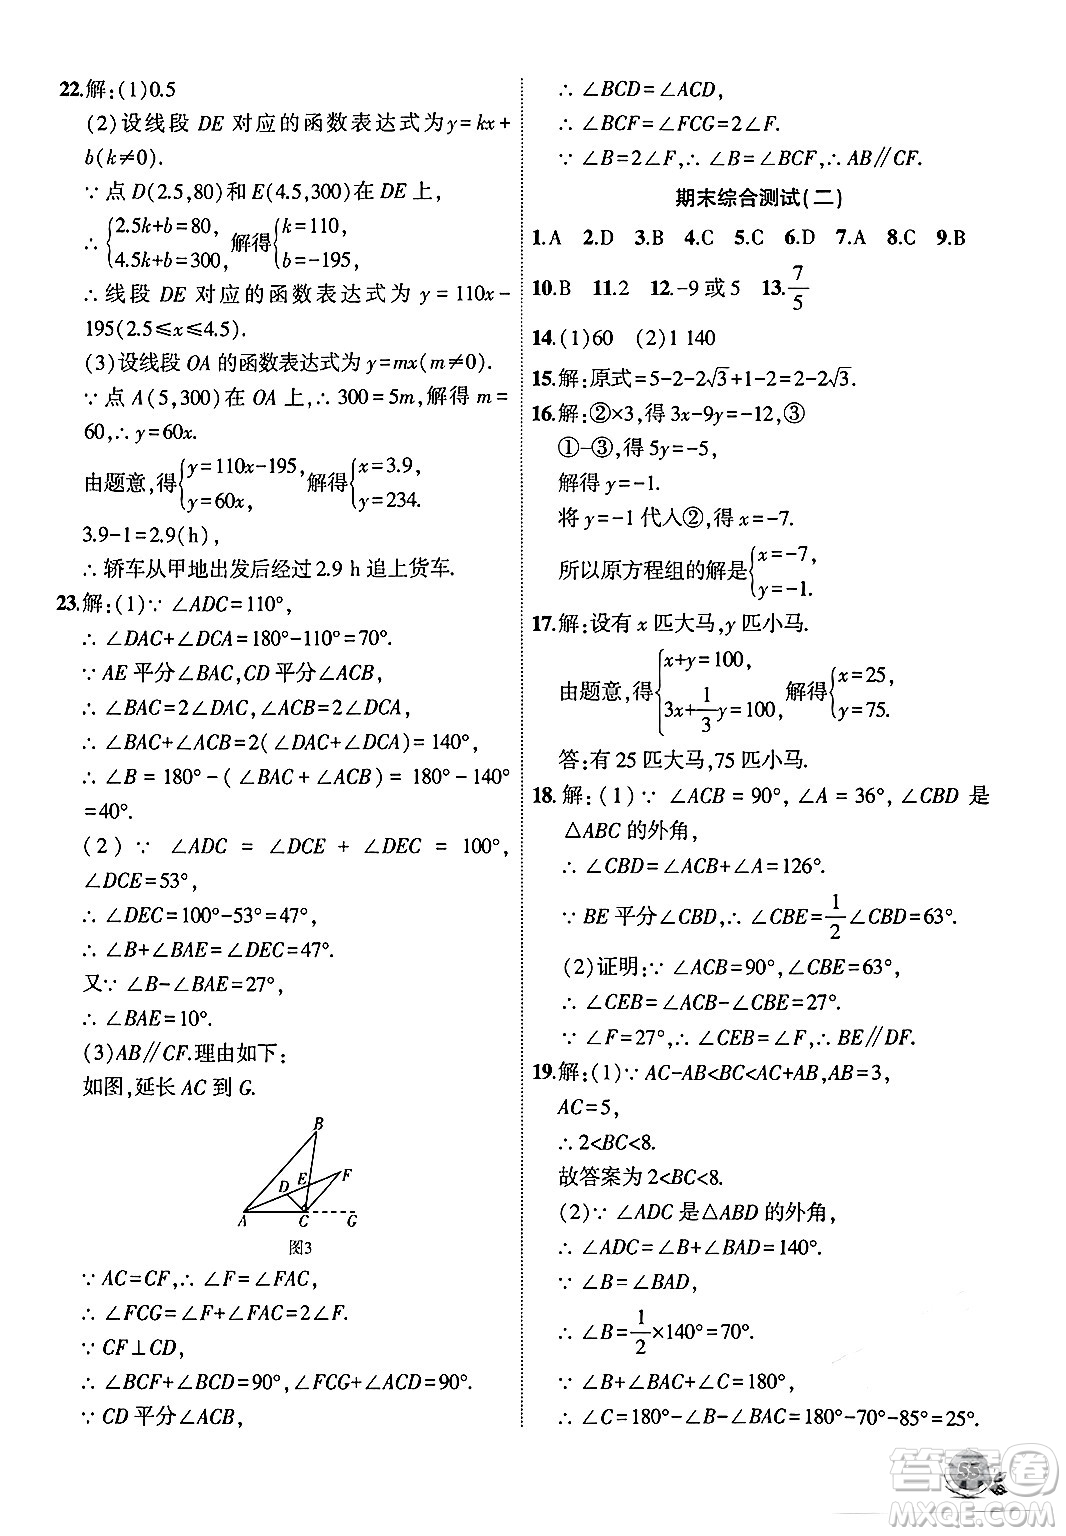 22.解:(1)0.5
(2)设线段 DE 对应的函数表达式为y=kx+
b(k≠0).
∵点 D(2.5,80)和 E(4.5,300)在 DE 上,
∴{2.5k+b=80, 4.5k+b=300, 解得{k=110, b=-195,
∴线段 DE 对应的函数表达式为 y=110x-
195(2.5≤x≤4.5).
(3)设线段 OA 的函数表达式为 y=mx(m≠0).
∵点 A(5,300)在 OA 上,∴300=5m,解得 m=
60,∴y=60x.
由题意,得{y=110x-195, y=60x, 解得{x=3.9, y=234.
3.9-1=2.9(h),
∴轿车从甲地出发后经过 2.9 h 追上货车.
23.解:(1)∵∠ADC=110°,
∴∠DAC+∠DCA=180°-110°=70°.
∵AE 平分∠BAC,CD 平分∠ACB,
∴∠BAC=2∠DAC,∠ACB=2∠DCA,
∴∠BAC+∠ACB=2(∠DAC+∠DCA)=140°,
∴∠B=180°-(∠BAC+∠ACB)=180°-140°
=40°.
(2)∵∠ADC=∠DCE+∠DEC=100°,
∠DCE=53°,
∴∠DEC=100°-53°=47°,
∴∠B+∠BAE=∠DEC=47°.
又∵∠B-∠BAE=27°,
∴∠BAE=10°.
(3)AB∥CF.理由如下:
如图,延长 AC 到 G.
B
D E F
A C G
图3
∵AC=CF,∴∠F=∠FAC,
∴∠FCG=∠F+∠FAC=2∠F.
∵CF⊥CD,
∴∠BCF+∠BCD=90°,∠FCG+∠ACD=90°.
∵CD 平分∠ACB,
∴∠BCD=∠ACD,
∴∠BCF=∠FCG=2∠F.
∵∠B=2∠F,∴∠B=∠BCF,∴AB∥CF.
期末综合测试(二)
1.A 2.D 3.B 4.C 5.C 6.D 7.A 8.C 9.B
10.B 11.2 12.-9或5 13.7/5
14.(1)60 (2)1 140
15.解:原式=5-2-2√3+1-2=2-2√3.
16.解:②×3,得 3x-9y=-12,③
①-③,得 5y=-5,
解得 y=-1.
将 y=-1 代人②,得 x=-7.
所以原方程组的解是{x=-7, y=-1.
17.解:设有 x 匹大马,y 匹小马.
由题意,得{x+y=100, 3x+1/3y=100, 解得{x=25, y=75.
答:有 25 匹大马,75 匹小马.
18.解:(1)∵∠ACB=90°,∠A=36°,∠CBD 是
△ABC 的外角,
∴∠CBD=∠ACB+∠A=126°.
∵BE 平分∠CBD,∴∠CBE=1/2∠CBD=63°.
(2)证明:∵∠ACB=90°,∠CBE=63°,
∴∠CEB=∠ACB-∠CBE=27°.
∵∠F=27°,∴∠CEB=∠F,∴BE∥DF.
19.解:(1)∵AC-AB<BC<AC+AB,AB=3,
AC=5,
∴2<BC<8.
故答案为 2<BC<8.
(2)∵∠ADC 是△ABD 的外角,
∴∠ADC=∠B+∠BAD=140°.
∵∠B=∠BAD,
∴∠B=1/2×140°=70°.
∵∠B+∠BAC+∠C=180°,
∴∠C=180°-∠B-∠BAC=180°-70°-85°=25°.
55
答案圈
MXQE.COM